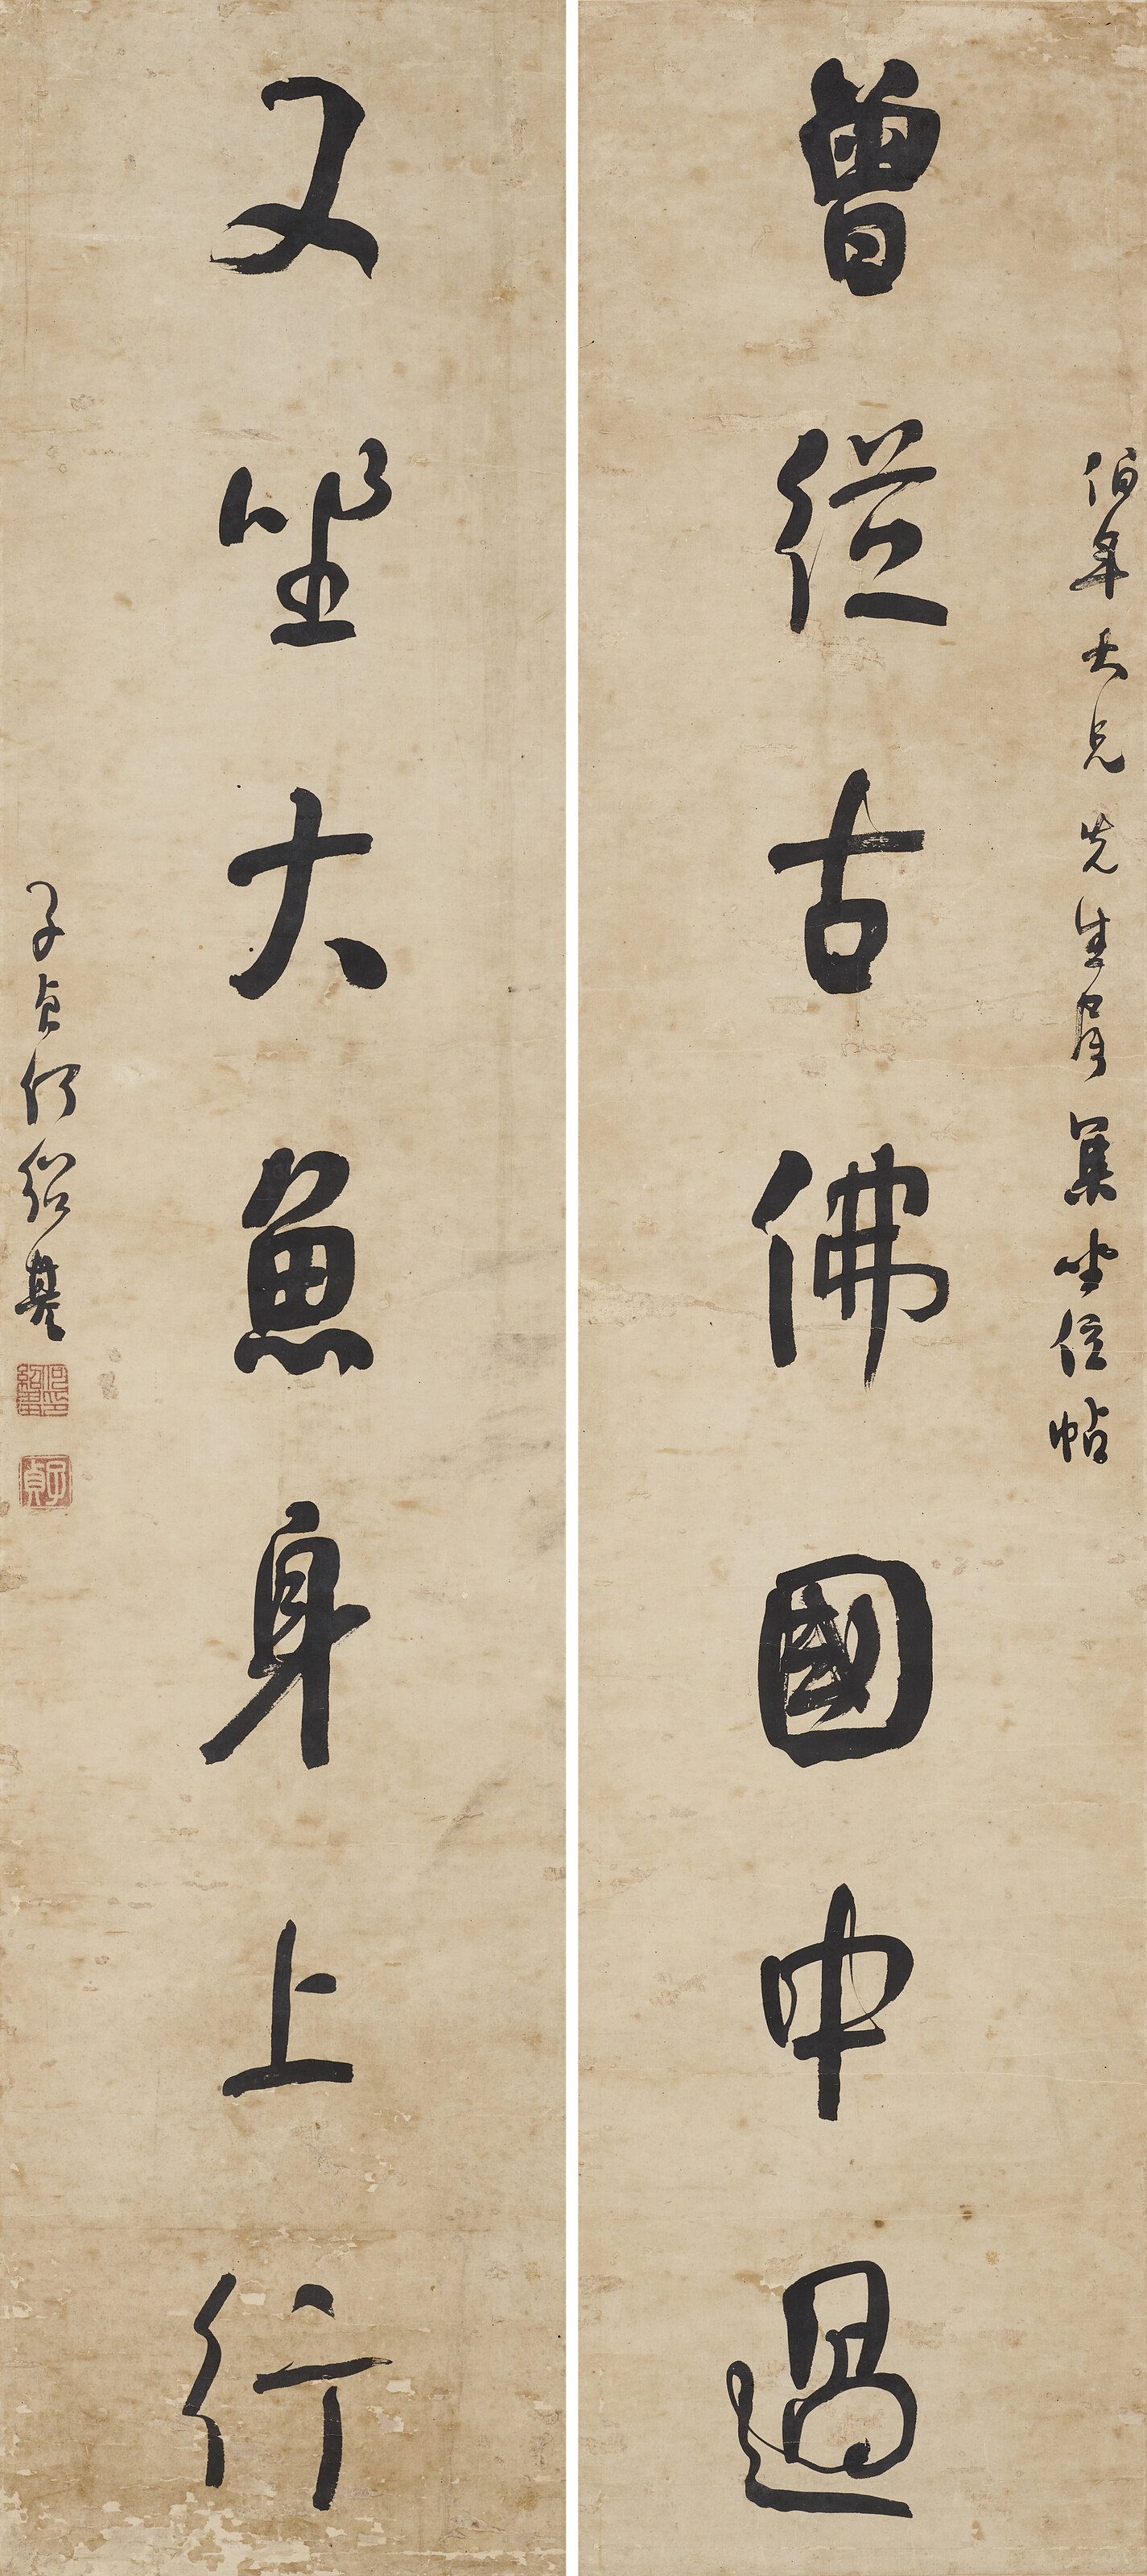 伯年大兄先生屬 集坐位帖
曾從古佛國中過
又坐大魚身上行
子貞何紹基
何紹基印
子貞